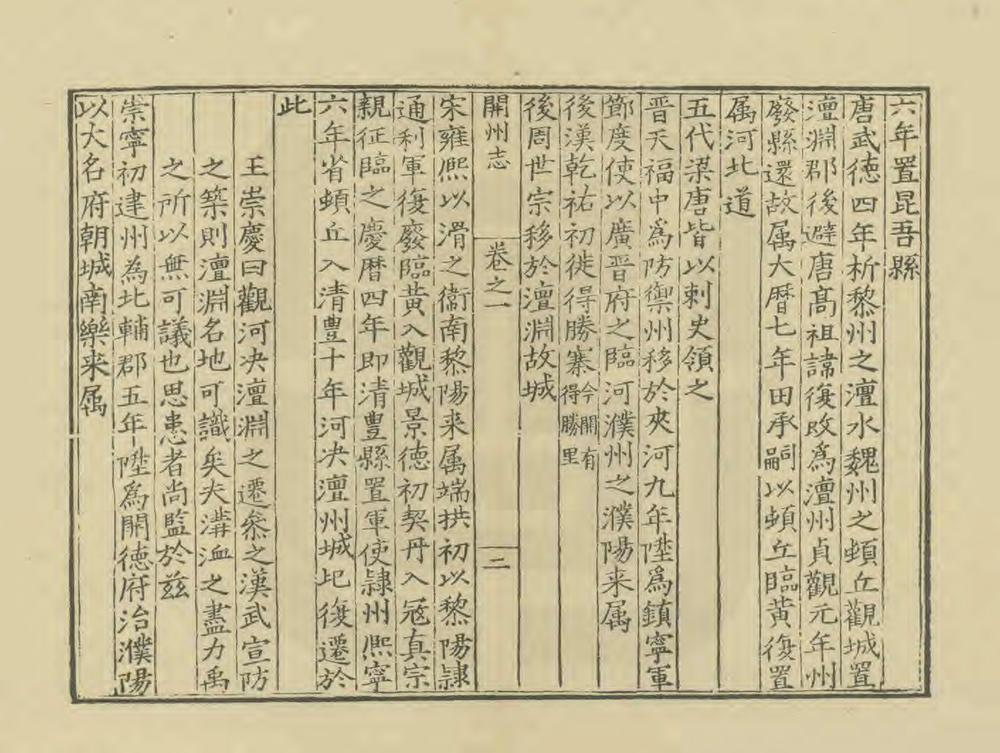 六年置昆吾縣
唐武德四年析黎州之澶水魏州之頓丘觀城置
澶淵郡後避唐髙祖諱復攺為澶州貞觀元年州
廢縣還故属大曆七年田承嗣以頓丘臨黄復置
属河北道
五代梁唐皆以刺史領之
晉天福中為防禦州移於夾河九年陞為鎮寧軍
節度使以廣晉府之臨河濮州之濮陽来属
後漢乾祐初徙得勝寨今開有得勝里
後周世宗移於澶淵故城
開州志 卷之一 二
宋雍熙以滑之衛南黎陽来属端拱初以黎陽隷
通利軍復廢臨黄入觀城景德初契丹入冦真宗
親征臨之慶曆四年即清豊縣置軍使隷州熙寧
六年省頓丘入清豊十年河决澶州城圮復遷於
此
王崇慶曰觀河决澶淵之遷叅之漢武宣防
之築則澶淵名地可識矣夫溝洫之盡力禹
之所以無可議也思患者尚監於兹
崇寧初建州為北輔郡五年陞為開德府治濮陽
以大名府朝城南樂来属